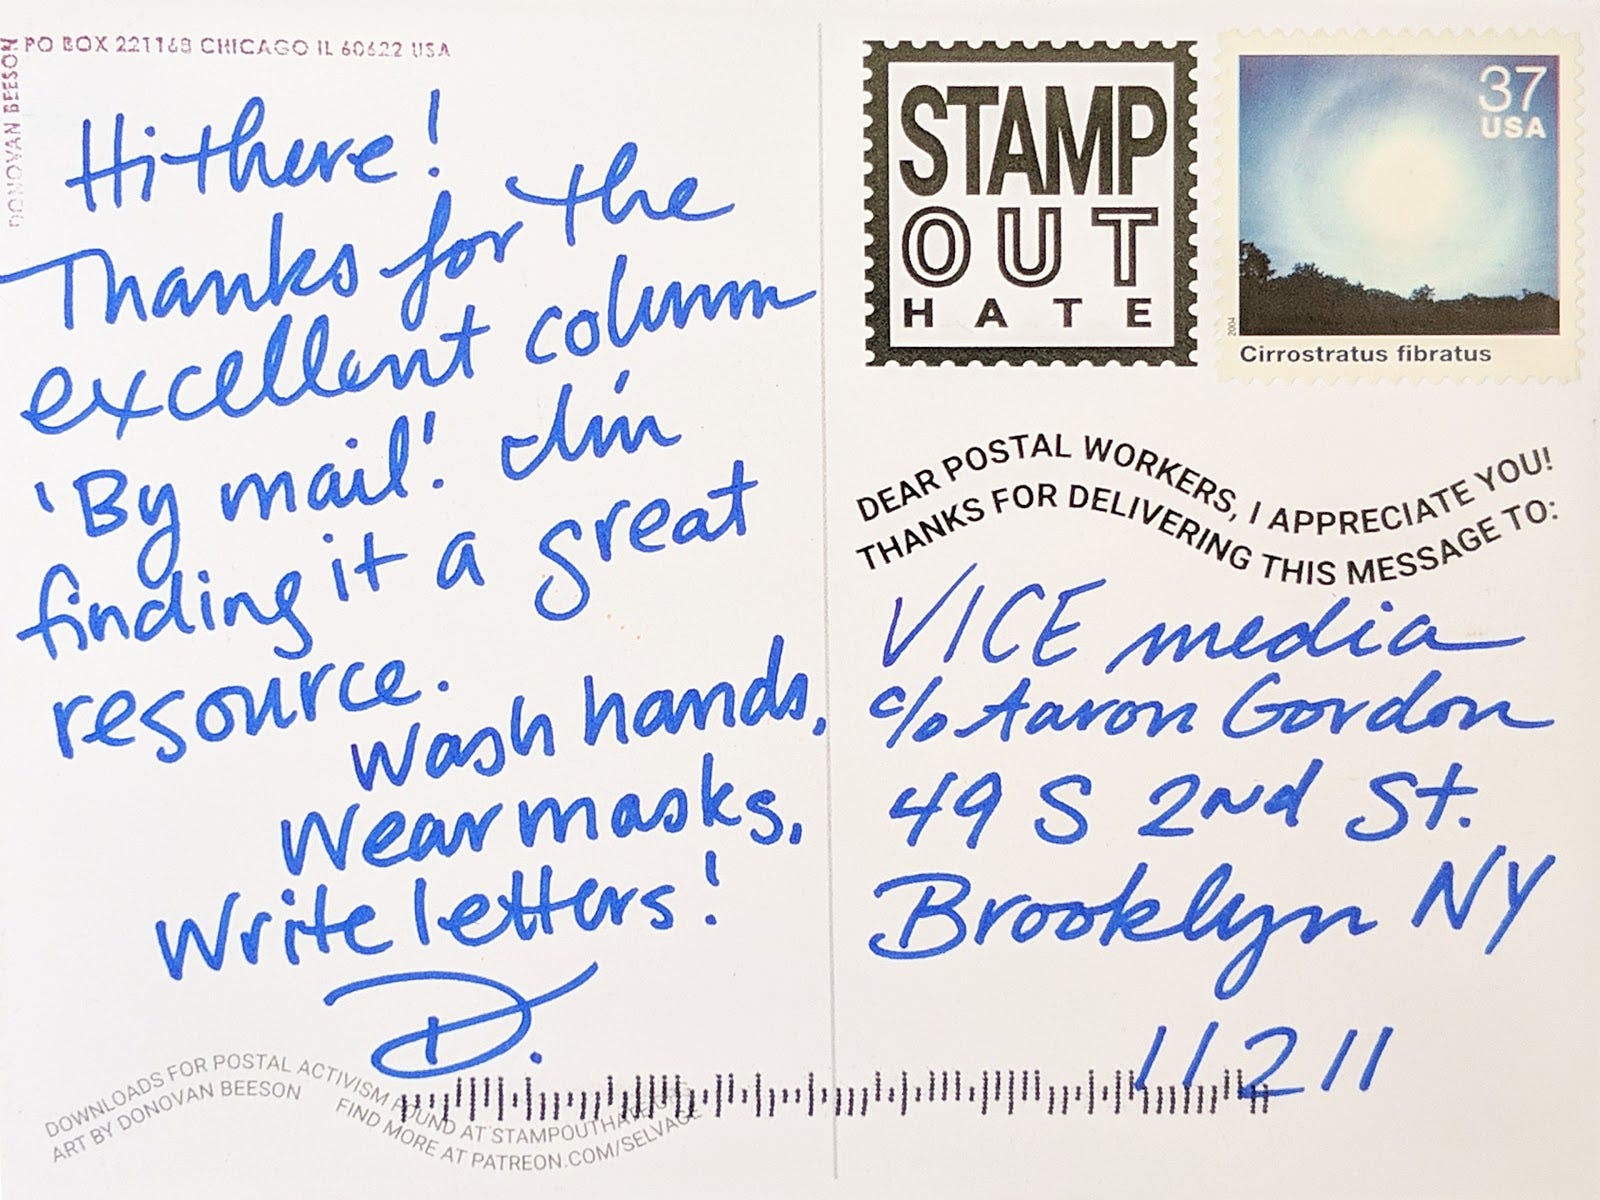 PO BOX 221168 CHICAGO IL 60622 USA
DONOVAN BEESON
Hi there!
Thanks for the
excellent column
'By mail'. I'm
finding it a great
resource.
Wash hands,
Wear masks,
Write letters!
D.
DOWNLOADS FOR POSTAL ACTIVISM FOUND AT STAMPOUTHATE
ART BY DONOVAN BEESON FIND MORE AT PATREON.COM/SELVAGE
STAMP
OUT
HATE
37
USA
2004
Cirrostratus fibratus
DEAR POSTAL WORKERS, I APPRECIATE YOU!
THANKS FOR DELIVERING THIS MESSAGE TO:
VICE media
c/o Aaron Gordon
49 S 2nd St.
Brooklyn NY
11211